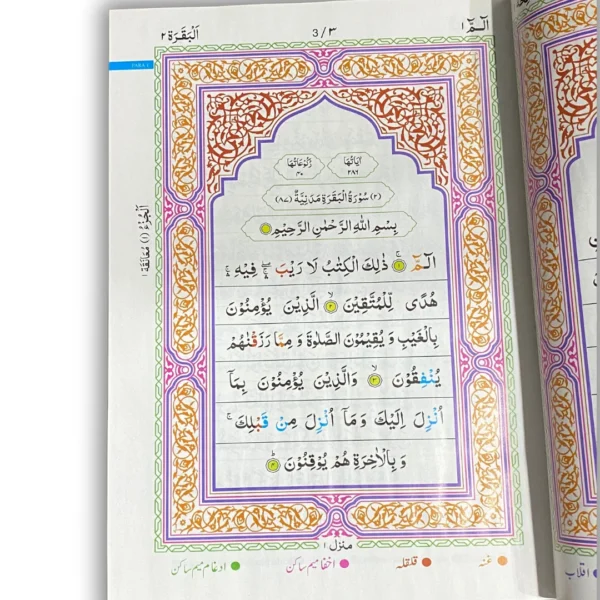 الٓمّٓ ١
٣/3
اَلْبَقَرَة ٢
اَلْجُزْءُ (١) مُعَانَقَة ١
اٰيَاتُهَا
٢٨٦
رُكُوْعَاتُهَا
٤٠
(٢) سُوْرَةُ الْبَقَرَةِ مَدَنِيَّةٌ (٨٧)
بِسْمِ اللّٰهِ الرَّحْمٰنِ الرَّحِيْمِ
الٓمّٓ ۚ ١ ذٰلِكَ الْكِتٰبُ لَا رَيْبَ ۛۖ فِيْهِ ۛۚ
هُدًى لِّلْمُتَّقِيْنَ ۙ ٢ الَّذِيْنَ يُؤْمِنُوْنَ
بِالْغَيْبِ وَ يُقِيْمُوْنَ الصَّلٰوةَ وَ مِمَّا رَزَقْنٰهُمْ
يُنْفِقُوْنَ ۙ ٣ وَالَّذِيْنَ يُؤْمِنُوْنَ بِمَاۤ
اُنْزِلَ اِلَيْكَ وَمَاۤ اُنْزِلَ مِنْ قَبْلِكَ ۚ
وَ بِالْاٰخِرَةِ هُمْ يُوْقِنُوْنَ ؕ ٤
منزل ١
غنه
قلقله
اخفا میم ساکن
ادغام میم ساکن
اقلاب